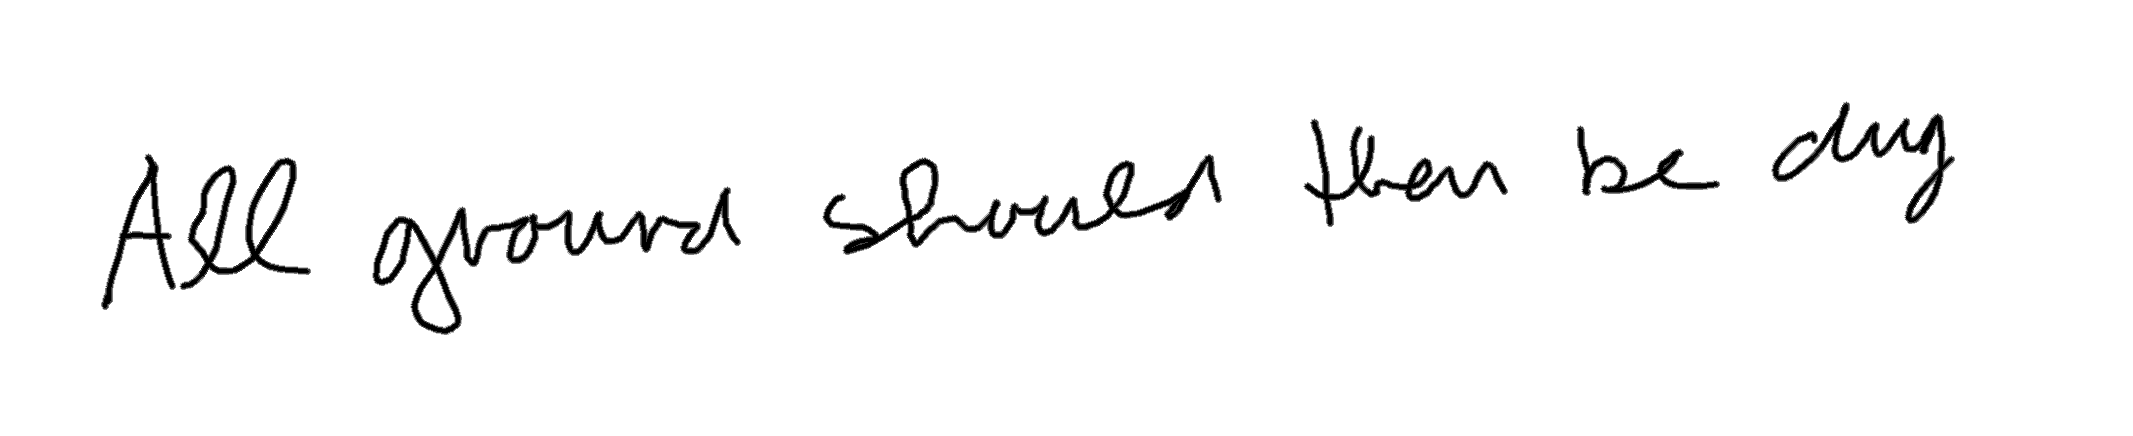 All ground should then be dug